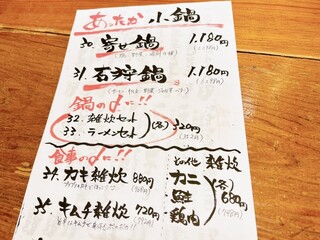 あったか小鍋
30. 寄せ鍋 1.180円
31. 石狩鍋 1.180円
鍋の〆に!!
32. 雑炊セット
33. ラーメンセット
(各) 320円
食事の〆に!!
34. カキ雑炊 880円
35. キムチ雑炊 720円
その他 雑炊
カニ
鮭
鶏肉
(各) 680円